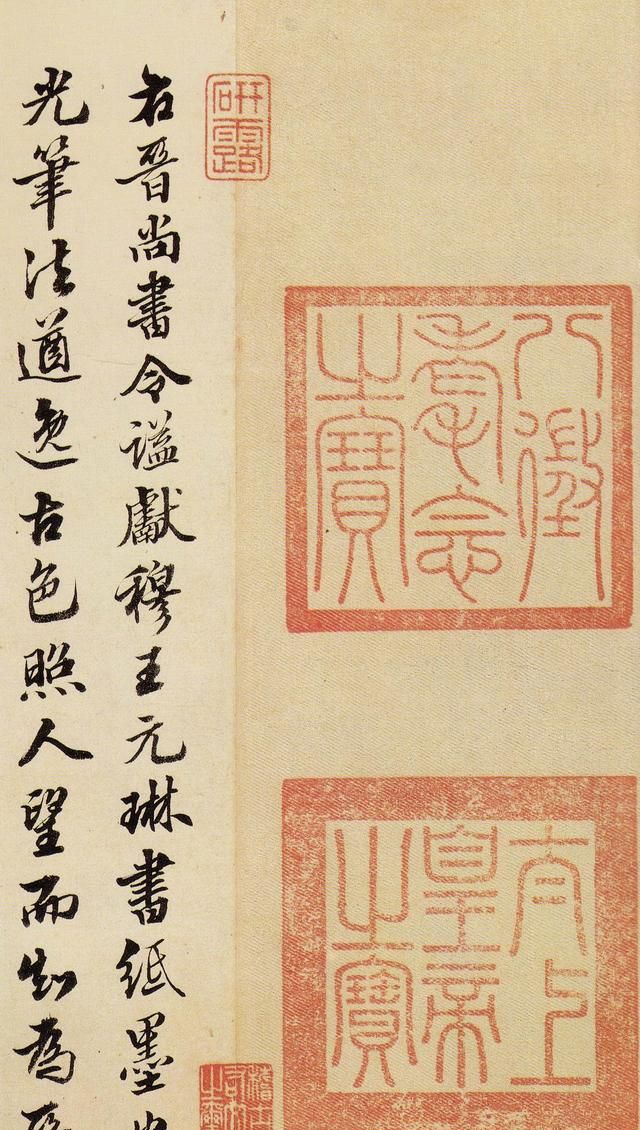 八徵
耄念
之寶
太上
皇帝
之寶
研露
稽古
右文
之璽
右晉尚書令謚獻穆王元琳書紙墨
光筆法遒逸古色照人望而知為